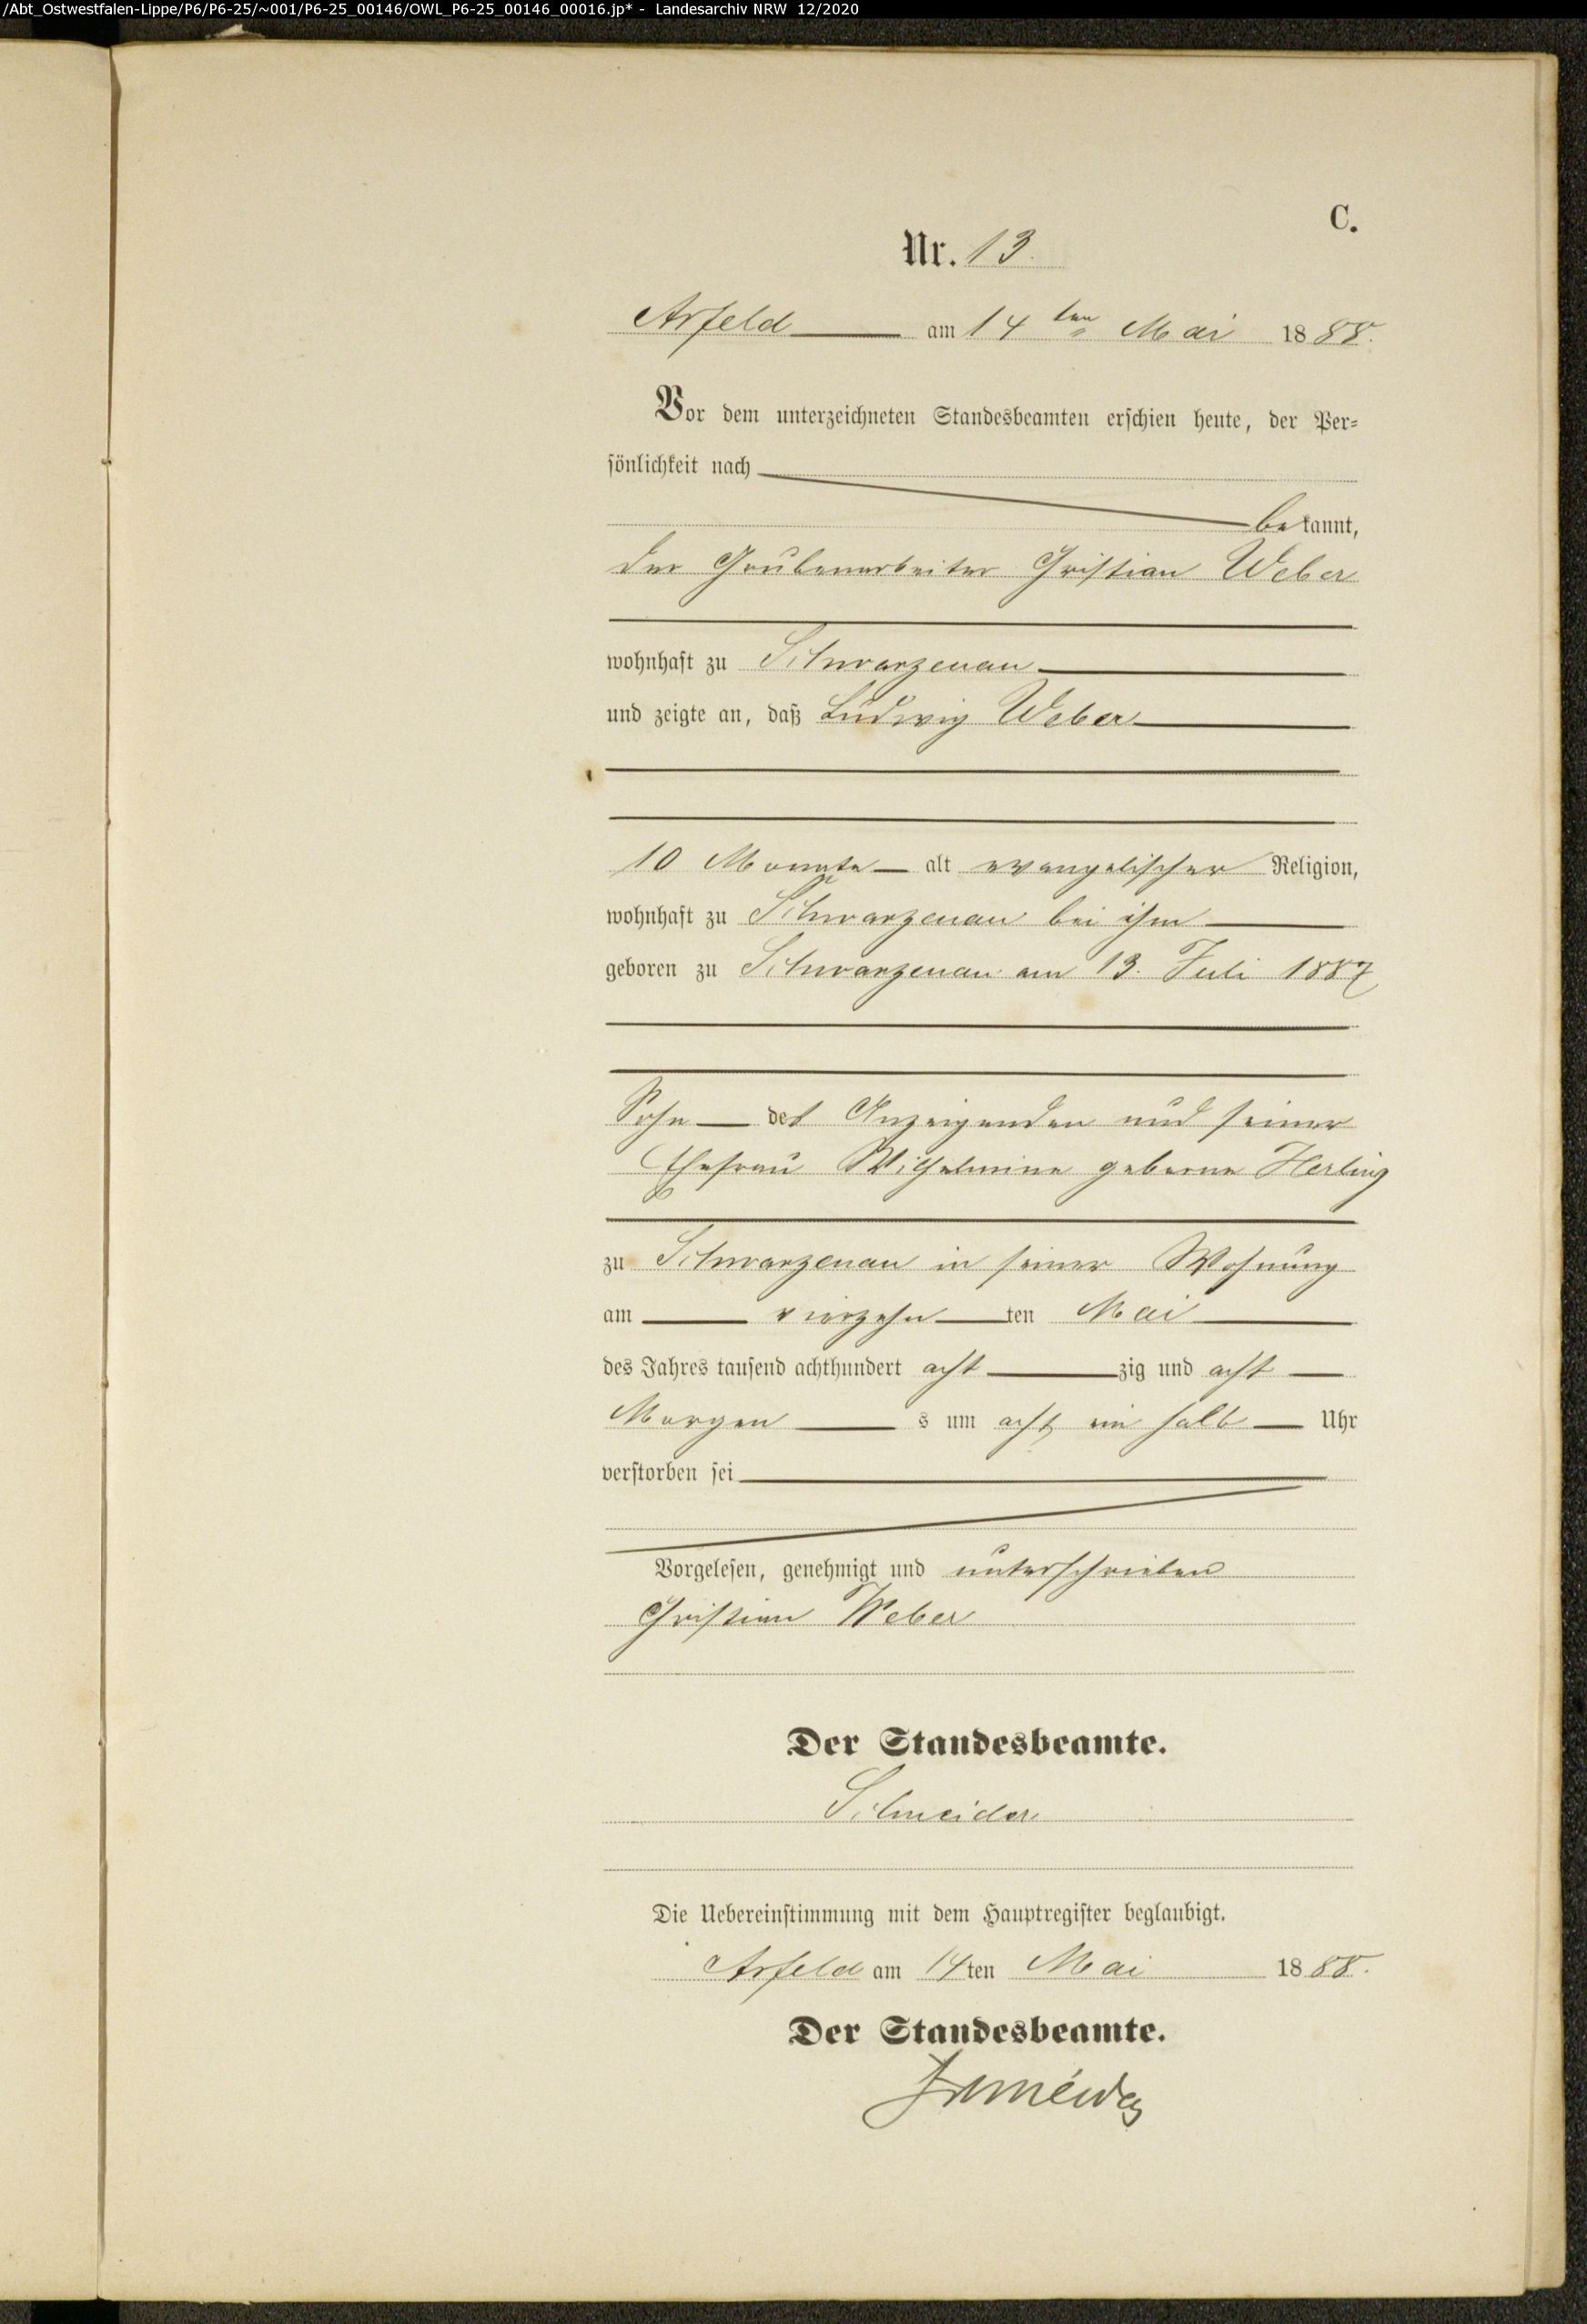 /Abt_Ostwestfalen-Lippe/P6/P6-25/~001/P6-25_00146/OWL_P6-25_00146_00016.jp* - Landesarchiv NRW 12/2020
C.
Nr. 13.
Arfeld am 14ten Mai 1888.
Vor dem unterzeichneten Standesbeamten erschien heute, der Per-
sönlichkeit nach
bekannt,
der Grubenarbeiter Christian Weber
wohnhaft zu Schwarzenau
und zeigte an, daß Ludwig Weber
10 Monate alt evangelischer Religion,
wohnhaft zu Schwarzenau bei ihm
geboren zu Schwarzenau am 13. Juli 1887
Sohn des Anzeigenden und seiner
Ehefrau Wilhelmine geborne Herling
zu Schwarzenau in seiner Wohnung
am vierzehnten Mai
des Jahres tausend achthundert achtzig und acht
Morgens um acht ein halb Uhr
verstorben sei
Vorgelesen, genehmigt und unterschrieben
Christian Weber
Der Standesbeamte.
Schneider
Die Uebereinstimmung mit dem Hauptregister beglaubigt.
Arfeld am 14ten Mai 1888.
Der Standesbeamte.
Schneider